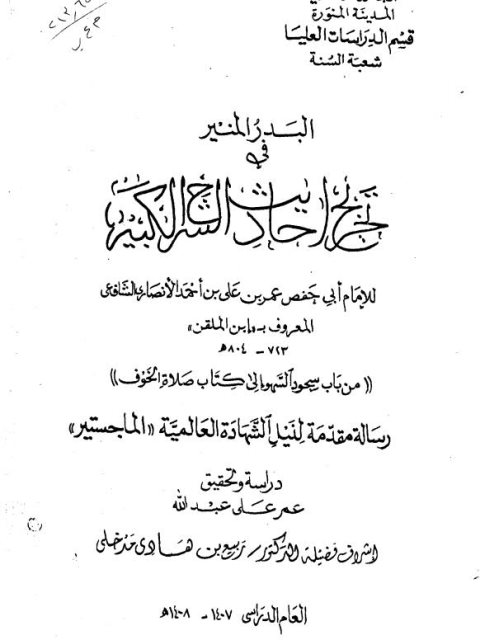 المدينة المنورة
قسم الدراسات العليا
شعبة السنة
٢١٣,٦
البَدرُ المنير
في
تخريج أحاديث الشرح الكبير
للإمام أبي حفص عمر بن علي بن أحمد الأنصاري الشافعي
المعروف بـ «ابن الملقن»
٧٢٣ - ٨٠٤هـ
((من باب سجود السهو إلى كتاب صلاة الخوف))
رسالة مقدمة لنيل الشهادة العالمية «الماجستير»
دراسة وتحقيق
عمر علي عبد الله
إشراف فضيلة الدكتور/ ربيع بن هادي مدخلي
العام الدراسي ١٤٠٧ - ١٤٠٨هـ